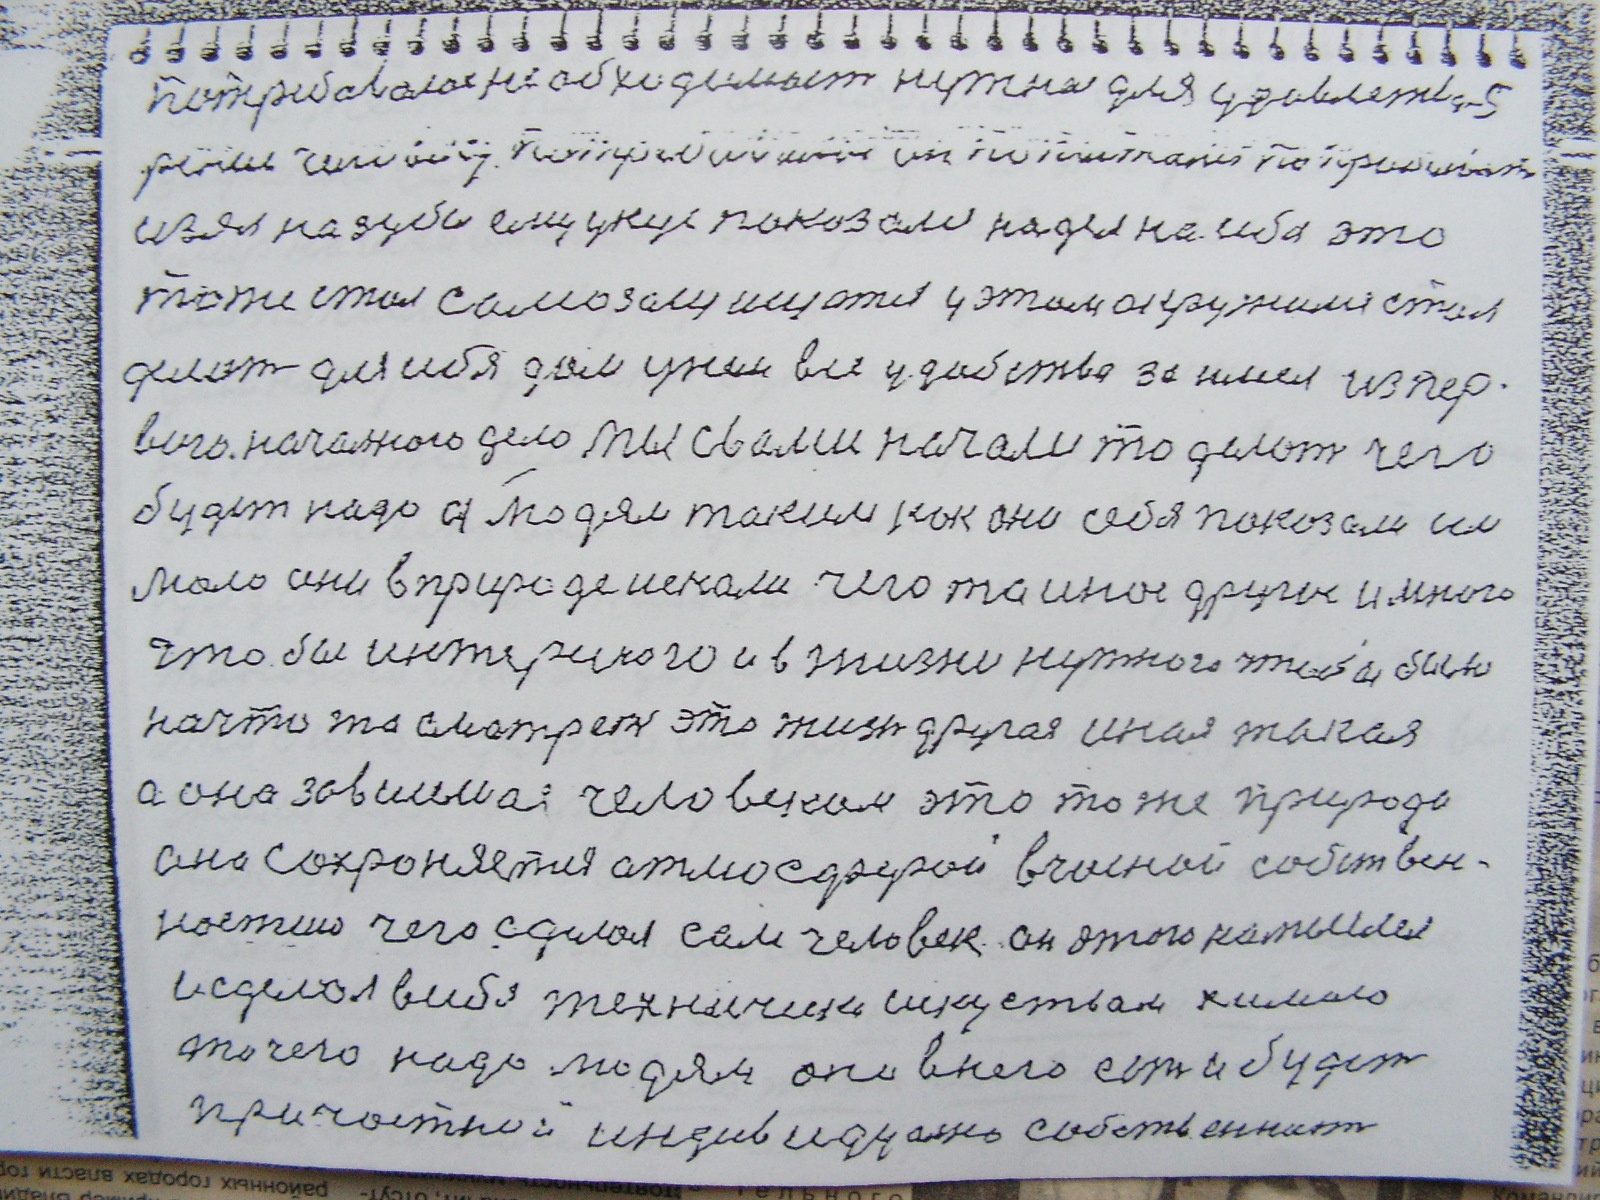 потрибовалас необходимост нужна для удавлетва-5
рения человеку
взял на зуби ему укус показали надел на себя это
тоже стал самозащищатся у этом окружении стал
делат для себя дом у нем все удобства занимел из пер-
вого началного дело мы с вами начали то делат чего
будет надо а людям таким как они себя показали им
мало они в природе искали чего та иное другое и много
что бы интересного и в жизни нужного чтоба было
на что та сматрет это жизн другая иная такая
а она зависимая человеком это тоже природа
она сохроняетия атмосдрерой вчасной собствен-
ностию чего сделал сам человек он этого намыслел
и сделал в себя технически искуством химию
то чего надо людям они в него ест и будет
при частной индивидуално собственност